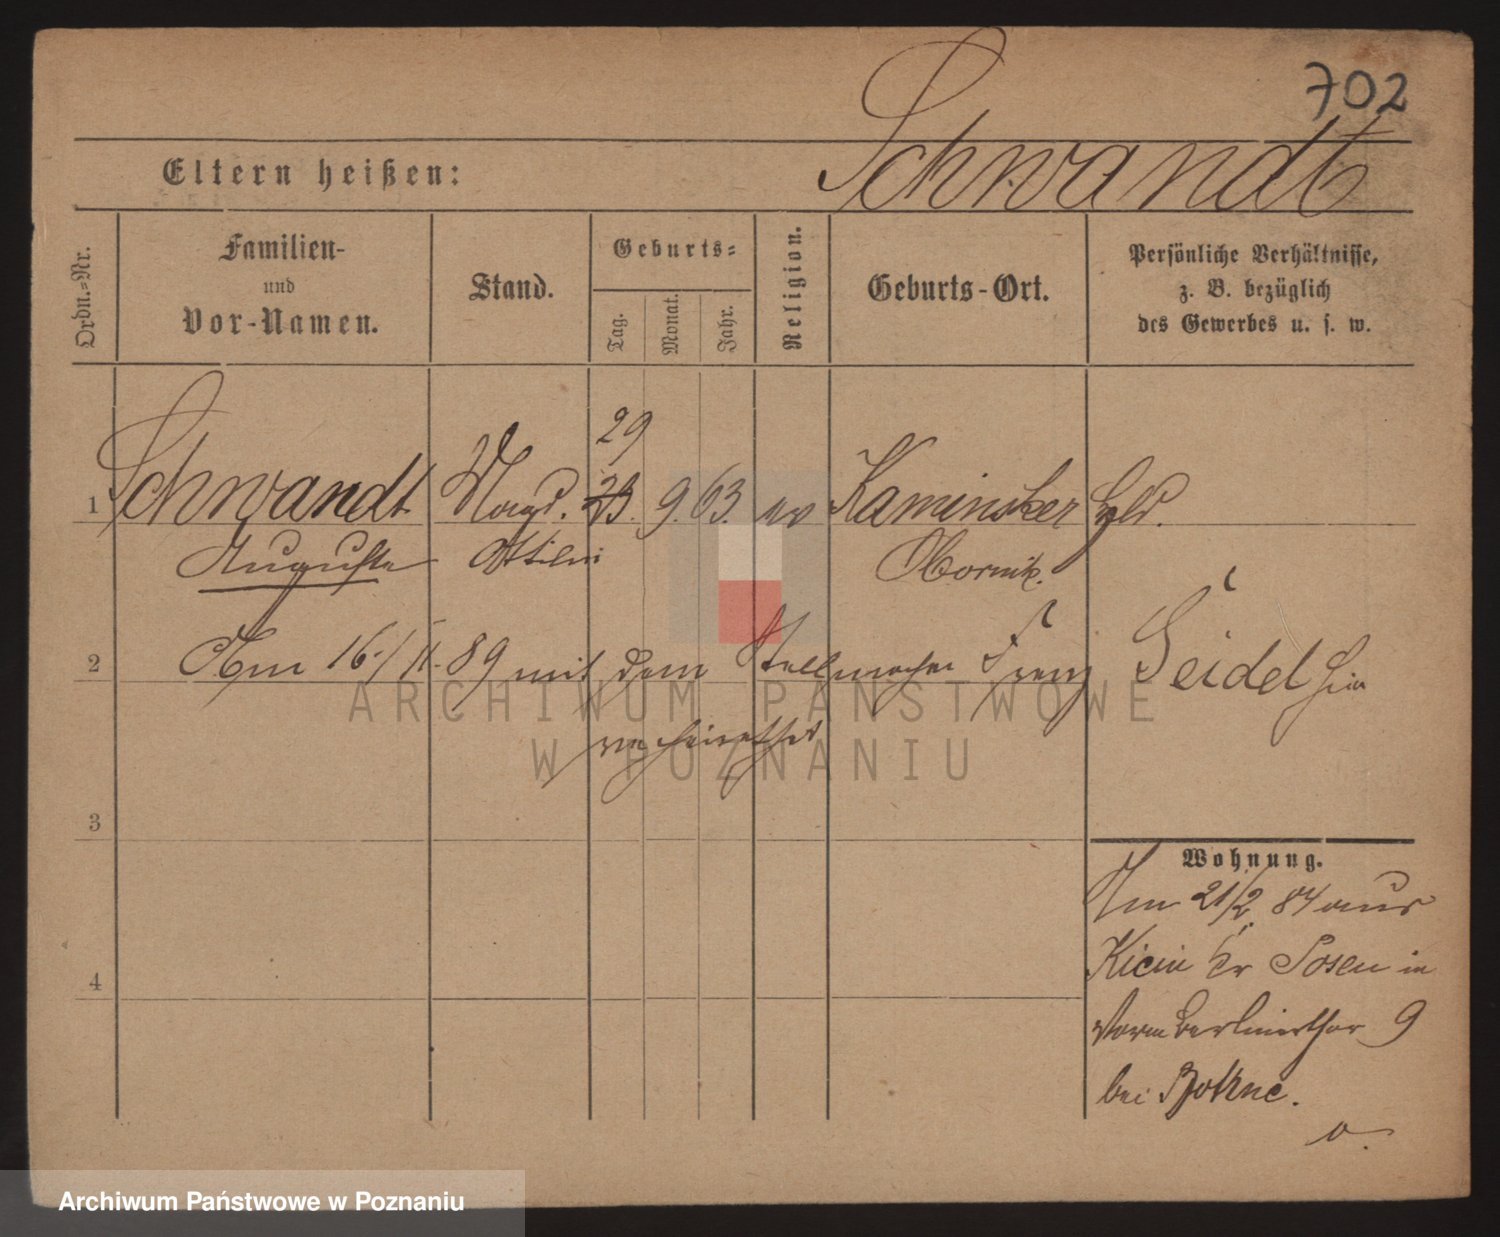 702
Schwandt
Eltern heißen:
Ordn.-Nr.
Familien-
und
Vor-Namen.
Stand.
Geburts-
Tag.
Monat.
Jahr.
Religion.
Geburts-Ort.
Persönliche Verhältnisse,
z. B. bezüglich
des Gewerbes u. s. w.
29
1 Schwandt Magd. 23. 9. 63. ev Kaminsker
Auguste Ottilie Obornik.
2 Am 16./11. 89 mit dem Stellmacher Franz Seidel hier
verheirathet
3
4
Wohnung.
Am 21/2. 84 aus
Kicin Kr Posen in
Vorm Berlinerthor 9
bei Bohne.
ARCHIWUM PAŃSTWOWE
W POZNANIU
Archiwum Państwowe w Poznaniu